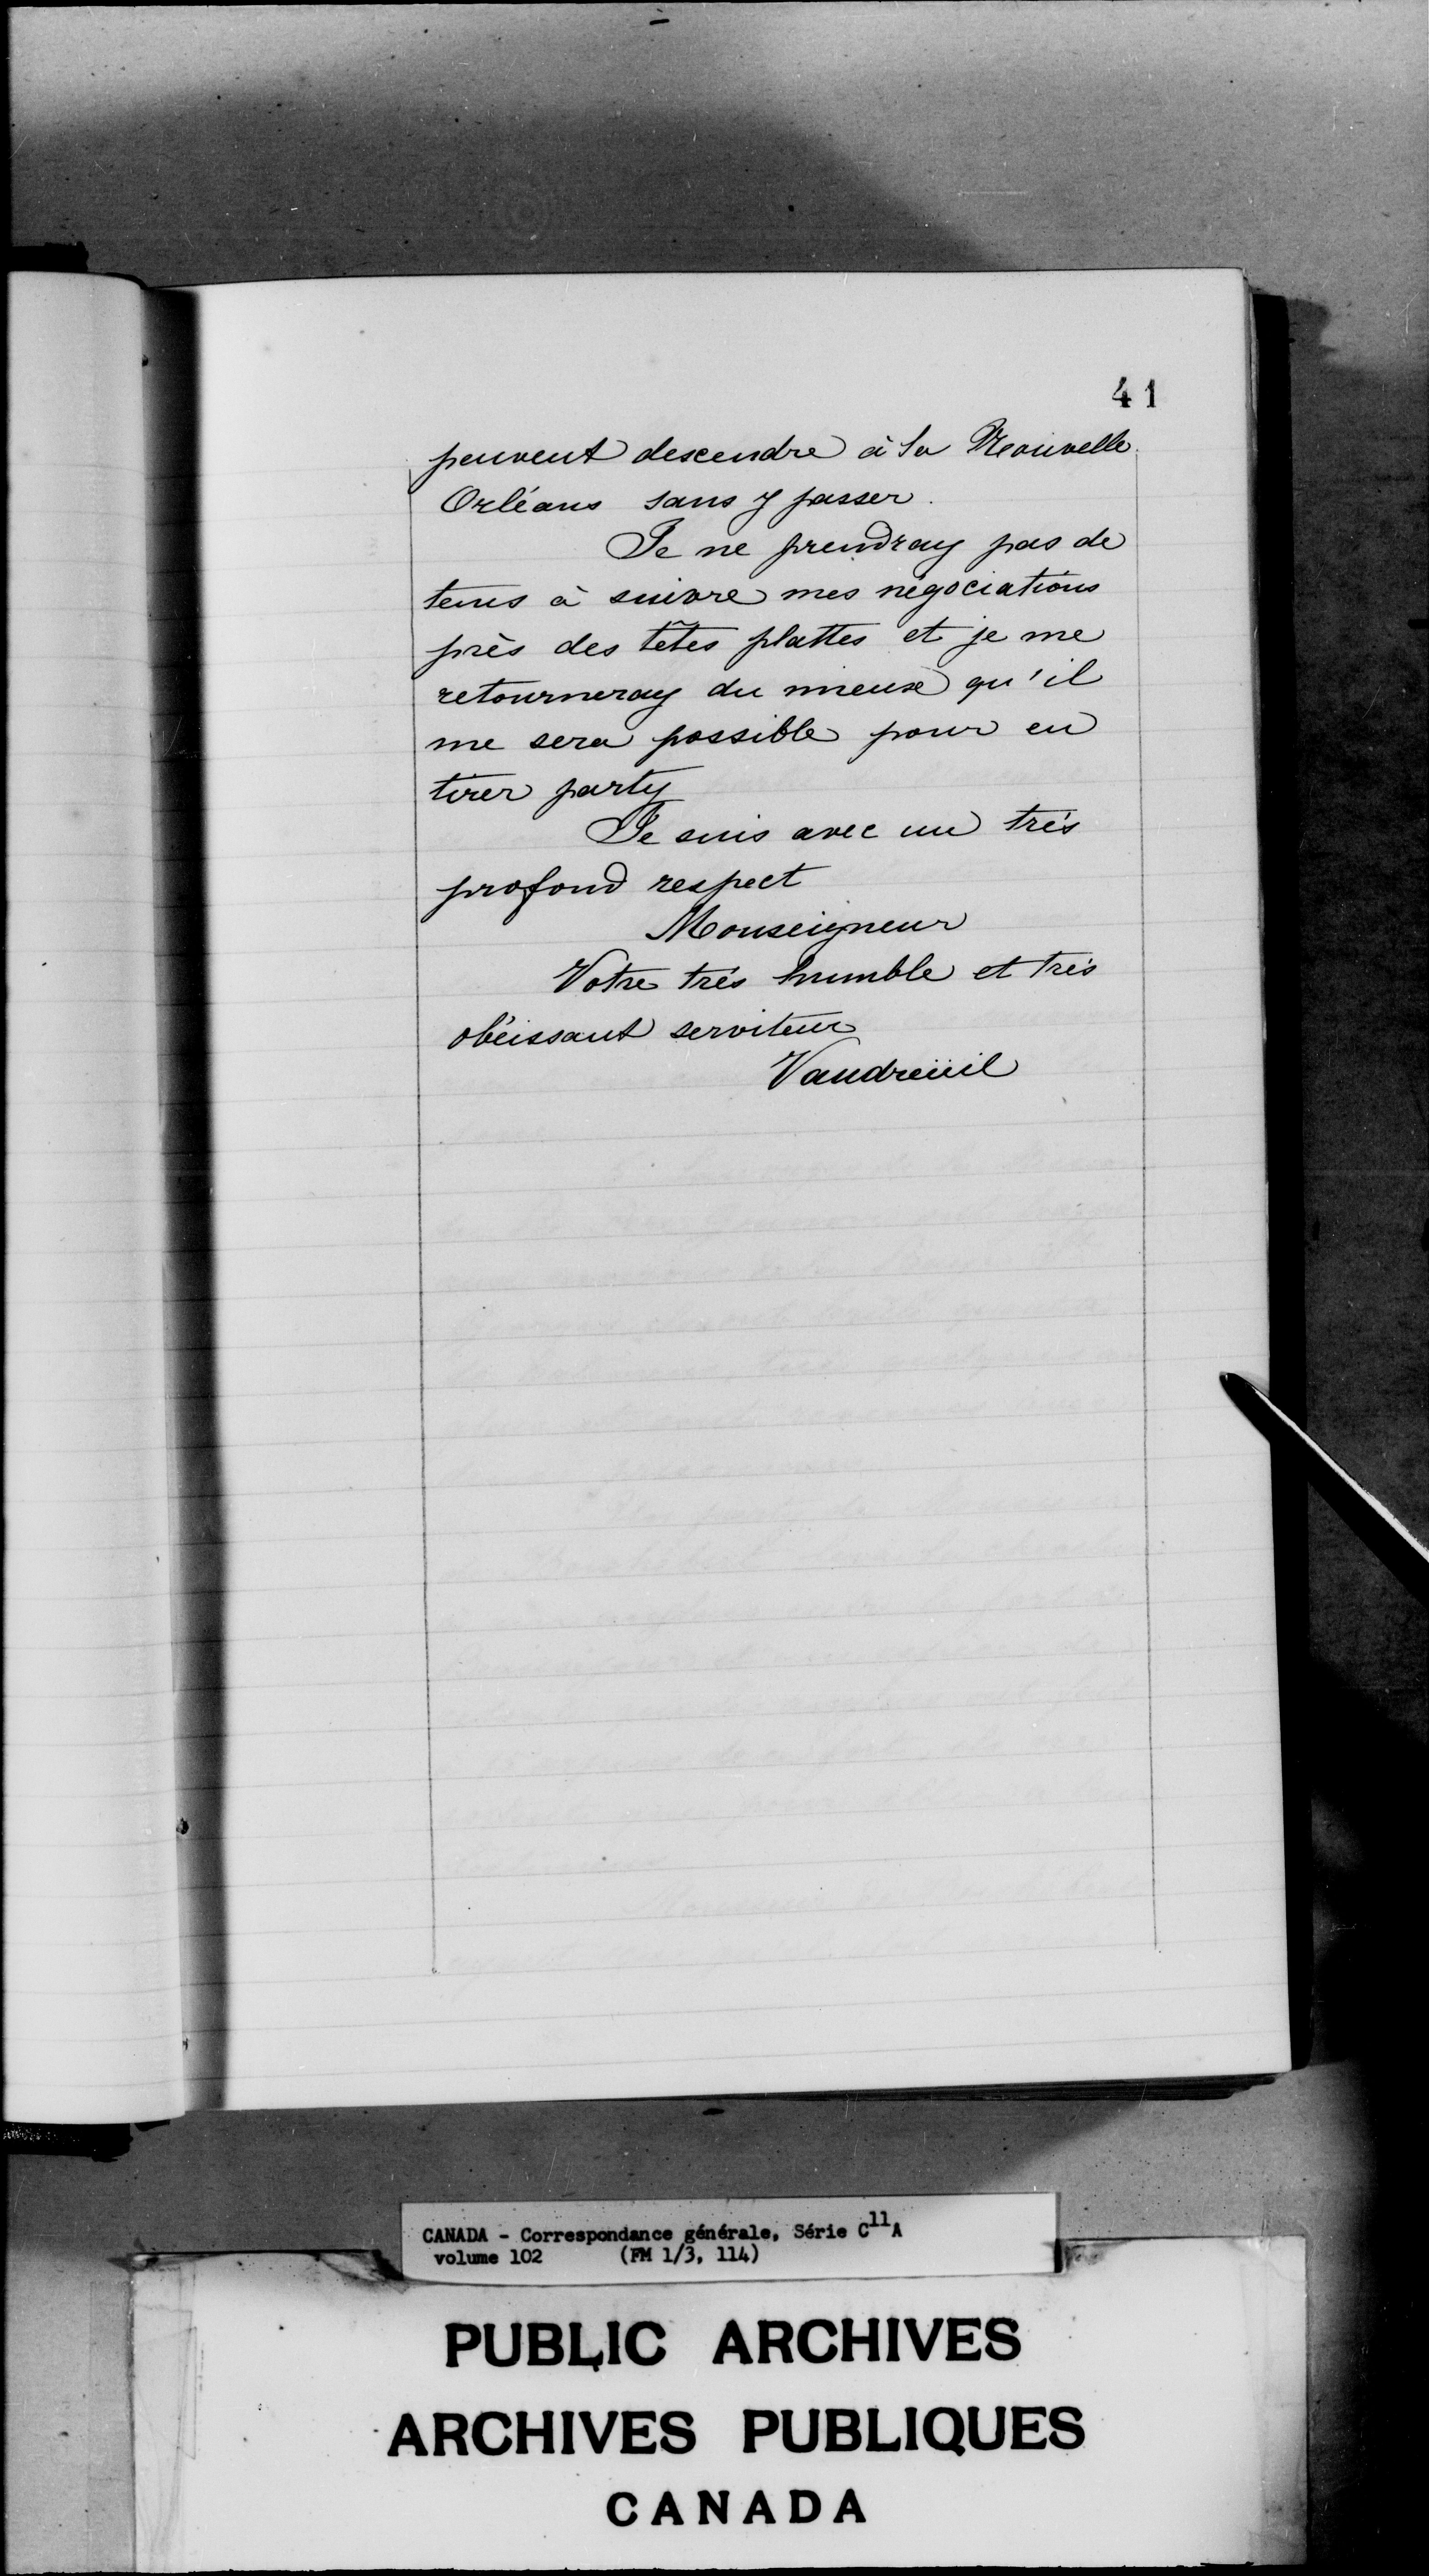 41
peuvent descendre à la Nouvelle
Orléans sans y passer.
Je ne prendray pas de
tems à suivre mes négociations
près des têtes plattes et je me
retourneray du mieux qu'il
me sera possible pour en
tirer party
Je suis avec un très
profond respect
Monseigneur
Votre très humble et très
obéissant serviteur
Vaudreüil
CANADA - Correspondance générale, Série C11A
volume 102 (FM 1/3, 114)
PUBLIC ARCHIVES
ARCHIVES PUBLIQUES
CANADA